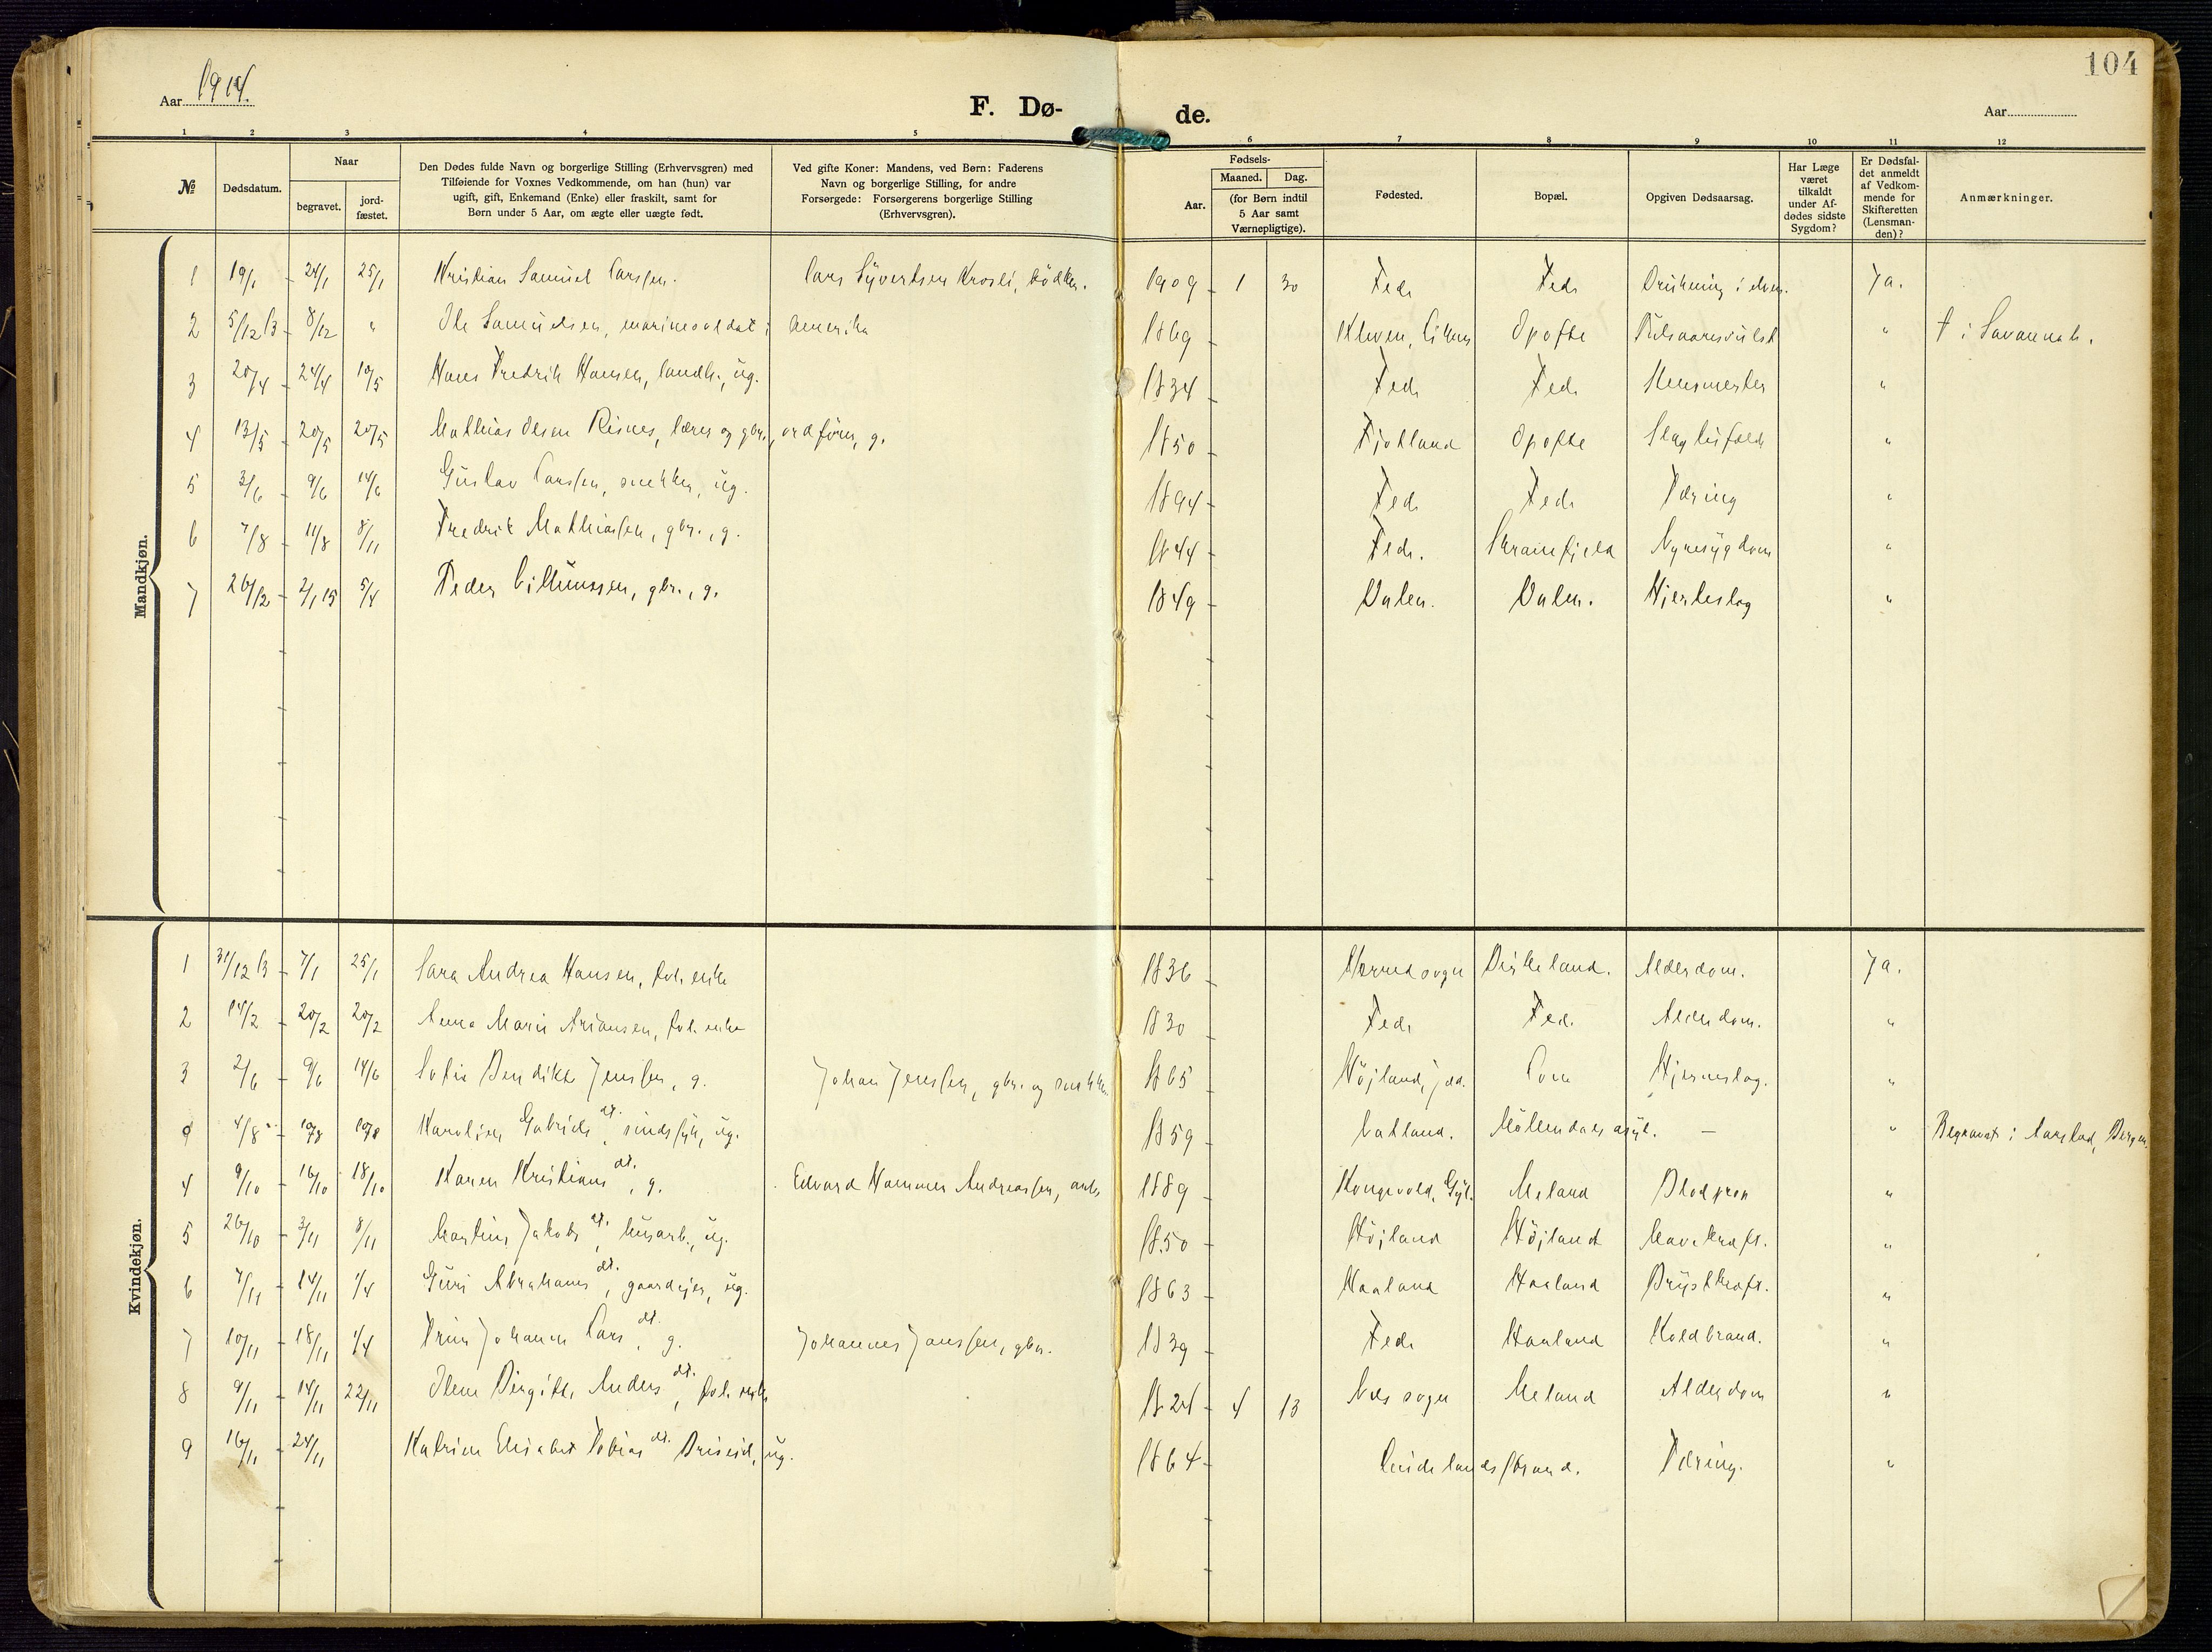 104
Aar 1914.
F. Dø-
de.
Aar
1 2 3 4 5 6 7 8 9 10 11 12
№
Dødsdatum.
Naar
begravet.
jord-
fæstet.
Den Dødes fulde Navn og borgerlige Stilling (Erhvervsgren) med
Tilføiende for Voxnes Vedkommende, om han (hun) var
ugift, gift, Enkemand (Enke) eller fraskilt, samt for
Børn under 5 Aar, om ægte eller uægte født.
Ved gifte Koner: Mandens, ved Børn: Faderens
Navn og borgerlige Stilling, for andre
Forsørgede: Forsørgerens borgerlige Stilling
(Erhvervsgren).
Fødsels-
Aar.
Maaned. Dag.
(for Børn indtil
5 Aar samt
Værnepligtige).
Fødested.
Bopæl.
Opgiven Dødsaarsag.
Har Læge
været
tilkaldt
under Af-
dødes sidste
Sygdom?
Er Dødsfal-
det anmeldt
af Vedkom-
mende for
Skifteretten
(Lensman-
den)?
Anmærkninger.
Mandkjøn.
1 19/1 24/1 25/1 Kristian Samuel Larssen. Lars Syvertsen Krosli, bødker. 1909 1 30 Feda Feda Drukning i elven. Ja.
2 5/12 13 8/12 " Ole Samuelsen, marinesoldat i Amerika 1869 Opofte " † i Savannah.
3 20/4 24/4 10/5 Hans Fredrik Hansen, landh., ug. 1834 Feda Feda "
4 13/5 20/5 20/5 Mathias Olsen Risnes, lærer og gbr., ordfører, g. 1850 Fjotland Opofte Slagtilfælde "
5 3/6 9/6 14/6 Gustav Larssen, snekker, ug. 1894 Feda Feda Tæring "
6 7/8 11/8 8/11 Fredrik Mathiassen, gbr., g. 1844 Feda. Nyresygdom "
7 26/12 2/1 15 5/4 Peder Villumssen, gbr., g. 1849 Dalen. Dalen. Hjerteslag "
Kvindekjøn.
1 31/12 13 7/1 25/1 Sara Andrea Hansen, fol. enke 1836 Herred sogn Birkeland. Alderdom. Ja.
2 14/2 20/2 20/2 Anna Marie Ariansen, fol. enke 1830 Feda Feda Alderdom. "
3 2/6 9/6 14/6 Sofie Bendikte Jenssen, g. Johan Jenssen, gbr. og snekker 1865 Højland, Hjerneslag. "
4/8 10/8 10/8 Karoline Gabriels dt., sindssyk, ug. 1859 Vatland. Møllendals asyl. — " Begravet i Aarstad, Bergen.
4 9/10 16/10 18/10 Karen Kristians dt., g. Edvard Hammer Andreassen, arb. 1889 Kongevold, Gyl. Meland "
5 26/10 3/11 8/11 Martine Jakobs dt., husarb., ug. 1850 Højland Højland Mavekræft. "
6 7/11 14/11 1/4 Guri Abrahams dt., gaardejer, ug. 1863 Haaland Haaland Brystkræft. "
7 10/11 18/11 1/4 Trine Johanne Lars dt., g. Johannes Janssen, gbr. 1839 Feda Haaland Koldbrand. "
8 9/11 14/11 22/11 Olene Birgitte Anders dt., fol. enke 1824 4 13 Næs sogn Meland Alderdom "
9 16/11 24/11 Katrine Elisabet Tobias dt. Briseid, ug. 1864 Lindelandsstrand. Tæring. "